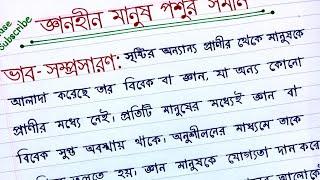 জ্ঞানহীন মানুষ পশুর সমান
Subscribe
ভাব-সম্প্রসারণ: সৃষ্টির অন্যান্য প্রাণীর থেকে মানুষকে
আলাদা করেছে তার বিবেক বা জ্ঞান, যা অন্য কোনো
প্রাণীর মধ্যে নেই। প্রতিটি মানুষের মধ্যেই জ্ঞান বা
বিবেক সুপ্ত অবস্থায় থাকে। অনুশীলনের মাধ্যমে তাকে
তুলতে হয়। জ্ঞান মানুষকে যোগ্যতা দান করে